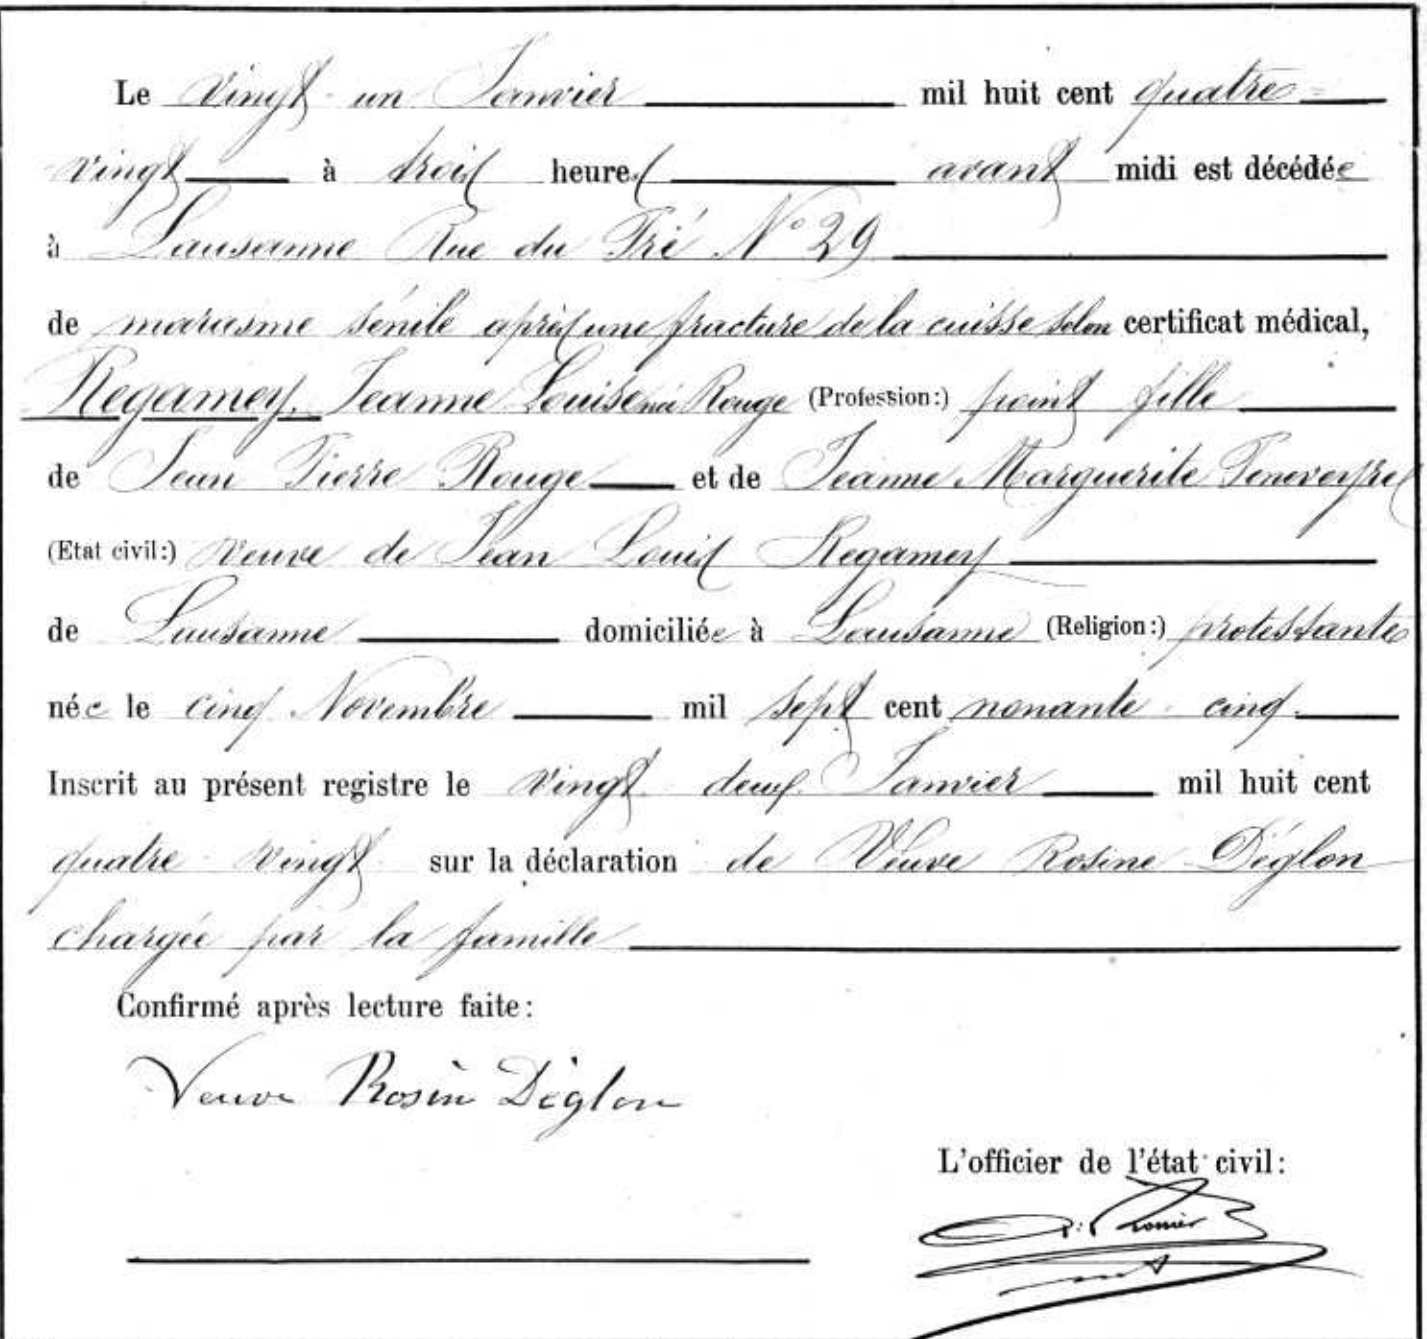 Le vingt un Janvier mil huit cent quatre
vingt à trois heures avant midi est décédée
à Lausanne Rue du Pré N° 29
de marasme sénile après une fracture de la cuisse selon certificat médical,
Regamey, Jeanne Louise née Rouge (Profession:) point fille
de Jean Pierre Rouge et de Jeanne Marguerite
(Etat civil:) veuve de Jean Louis Regamey
de Lausanne domiciliée à Lausanne (Religion:) protestante
née le cinq Novembre mil sept cent nonante cinq
Inscrit au présent registre le vingt deux Janvier mil huit cent
quatre vingt sur la déclaration de Veuve Rosine Déglon
chargée par la famille
Confirmé après lecture faite:
Veuve Rosin Déglon
L'officier de l'état civil: